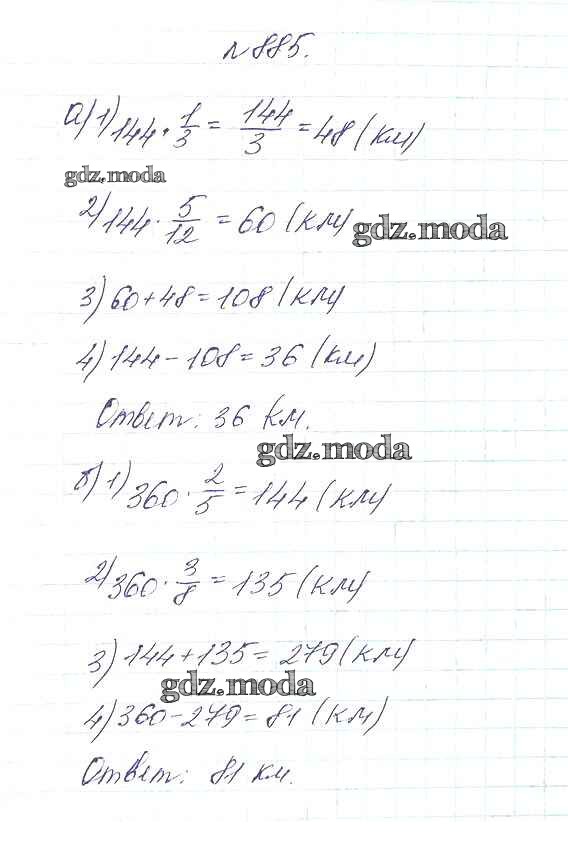 №885.
а) 1) 144 · 1/3 = 144/3 = 48 (км)
gdz.moda
2) 144 · 5/12 = 60 (км)
gdz.moda
3) 60 + 48 = 108 (км)
4) 144 - 108 = 36 (км)
Ответ: 36 км.
gdz.moda
б) 1) 360 · 2/5 = 144 (км)
2) 360 · 3/8 = 135 (км)
3) 144 + 135 = 279 (км)
gdz.moda
4) 360 - 279 = 81 (км)
Ответ: 81 км.